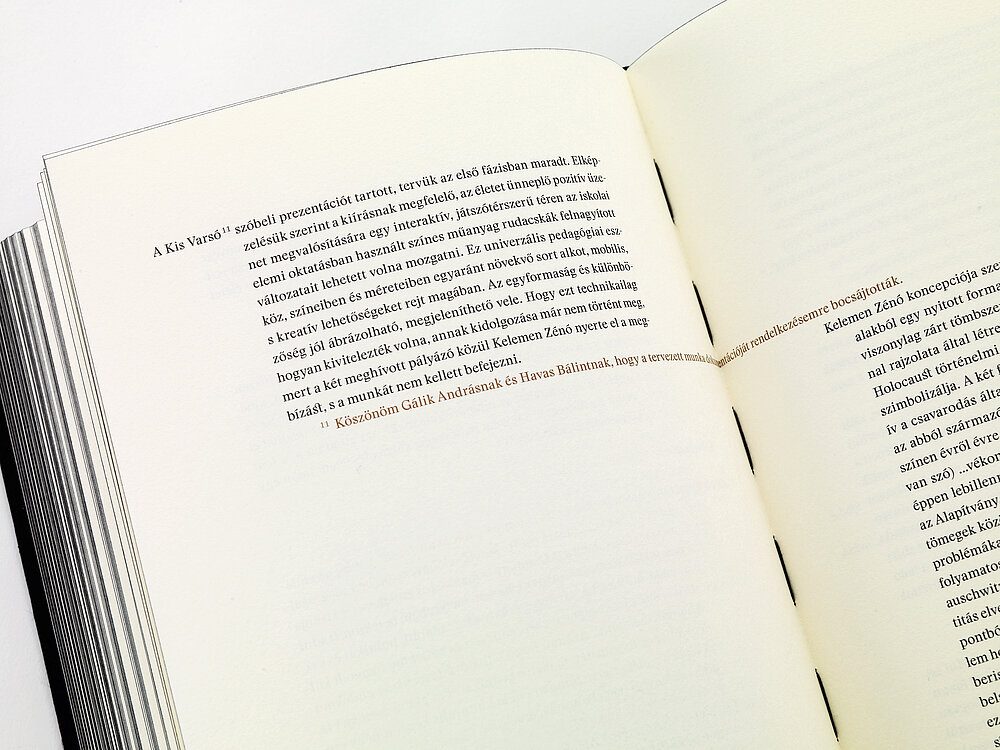 A Kis Varsó¹¹ szóbeli prezentációt tartott, tervük az első fázisban maradt. Elkép-
zelésük szerint a kiírásnak megfelelő, az életet ünneplő pozitív üze-
net megvalósítására egy interaktív, játszótérszerű téren az iskolai
elemi oktatásban használt színes műanyag rudacskák felnagyított
változatait lehetett volna mozgatni. Ez univerzális pedagógiai esz-
köz, színeiben és méreteiben egyaránt növekvő sort alkot, mobilis,
s kreatív lehetőségeket rejt magában. Az egyformaság és különbö-
zőség jól ábrázolható, megjeleníthető vele. Hogy ezt technikailag
hogyan kivitelezték volna, annak kidolgozása már nem történt meg,
mert a két meghívott pályázó közül Kelemen Zénó nyerte el a meg-
bízást, s a munkát nem kellett befejezni.
¹¹ Köszönöm Gálik Andrásnak és Havas Bálintnak, hogy a tervezett munka dokumentációját rendelkezésemre bocsájtották.
Kelemen Zénó koncepciója
alakból egy nyitott
viszonylag zárt
nal rajzolata által
Holocaust történelmi
szimbolizálja. A két
ív a csavarodás
az abból
színen évről évre
van szó)
éppen
az Alapítvány
tömegek